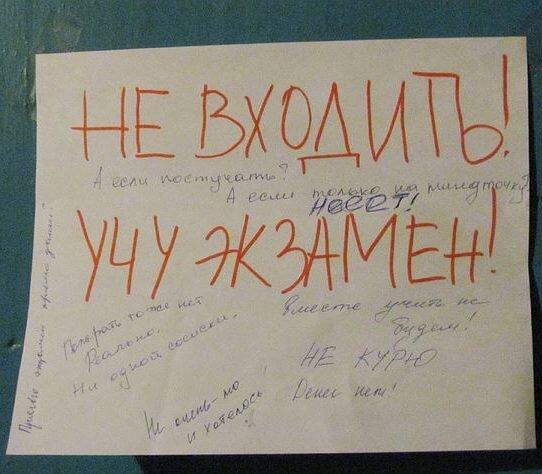 НЕ ВХОДИТЬ!
А если постучать?
А если только на минуточку?
НЕЕЕТ!
УЧУ ЭКЗАМЕН!
Пожрать тоже нет
Реально.
Ни одной сосиски.
Вместе учить не
будем!
НЕ КУРЮ
Денег нет!
Не очень-то
и хотелось!